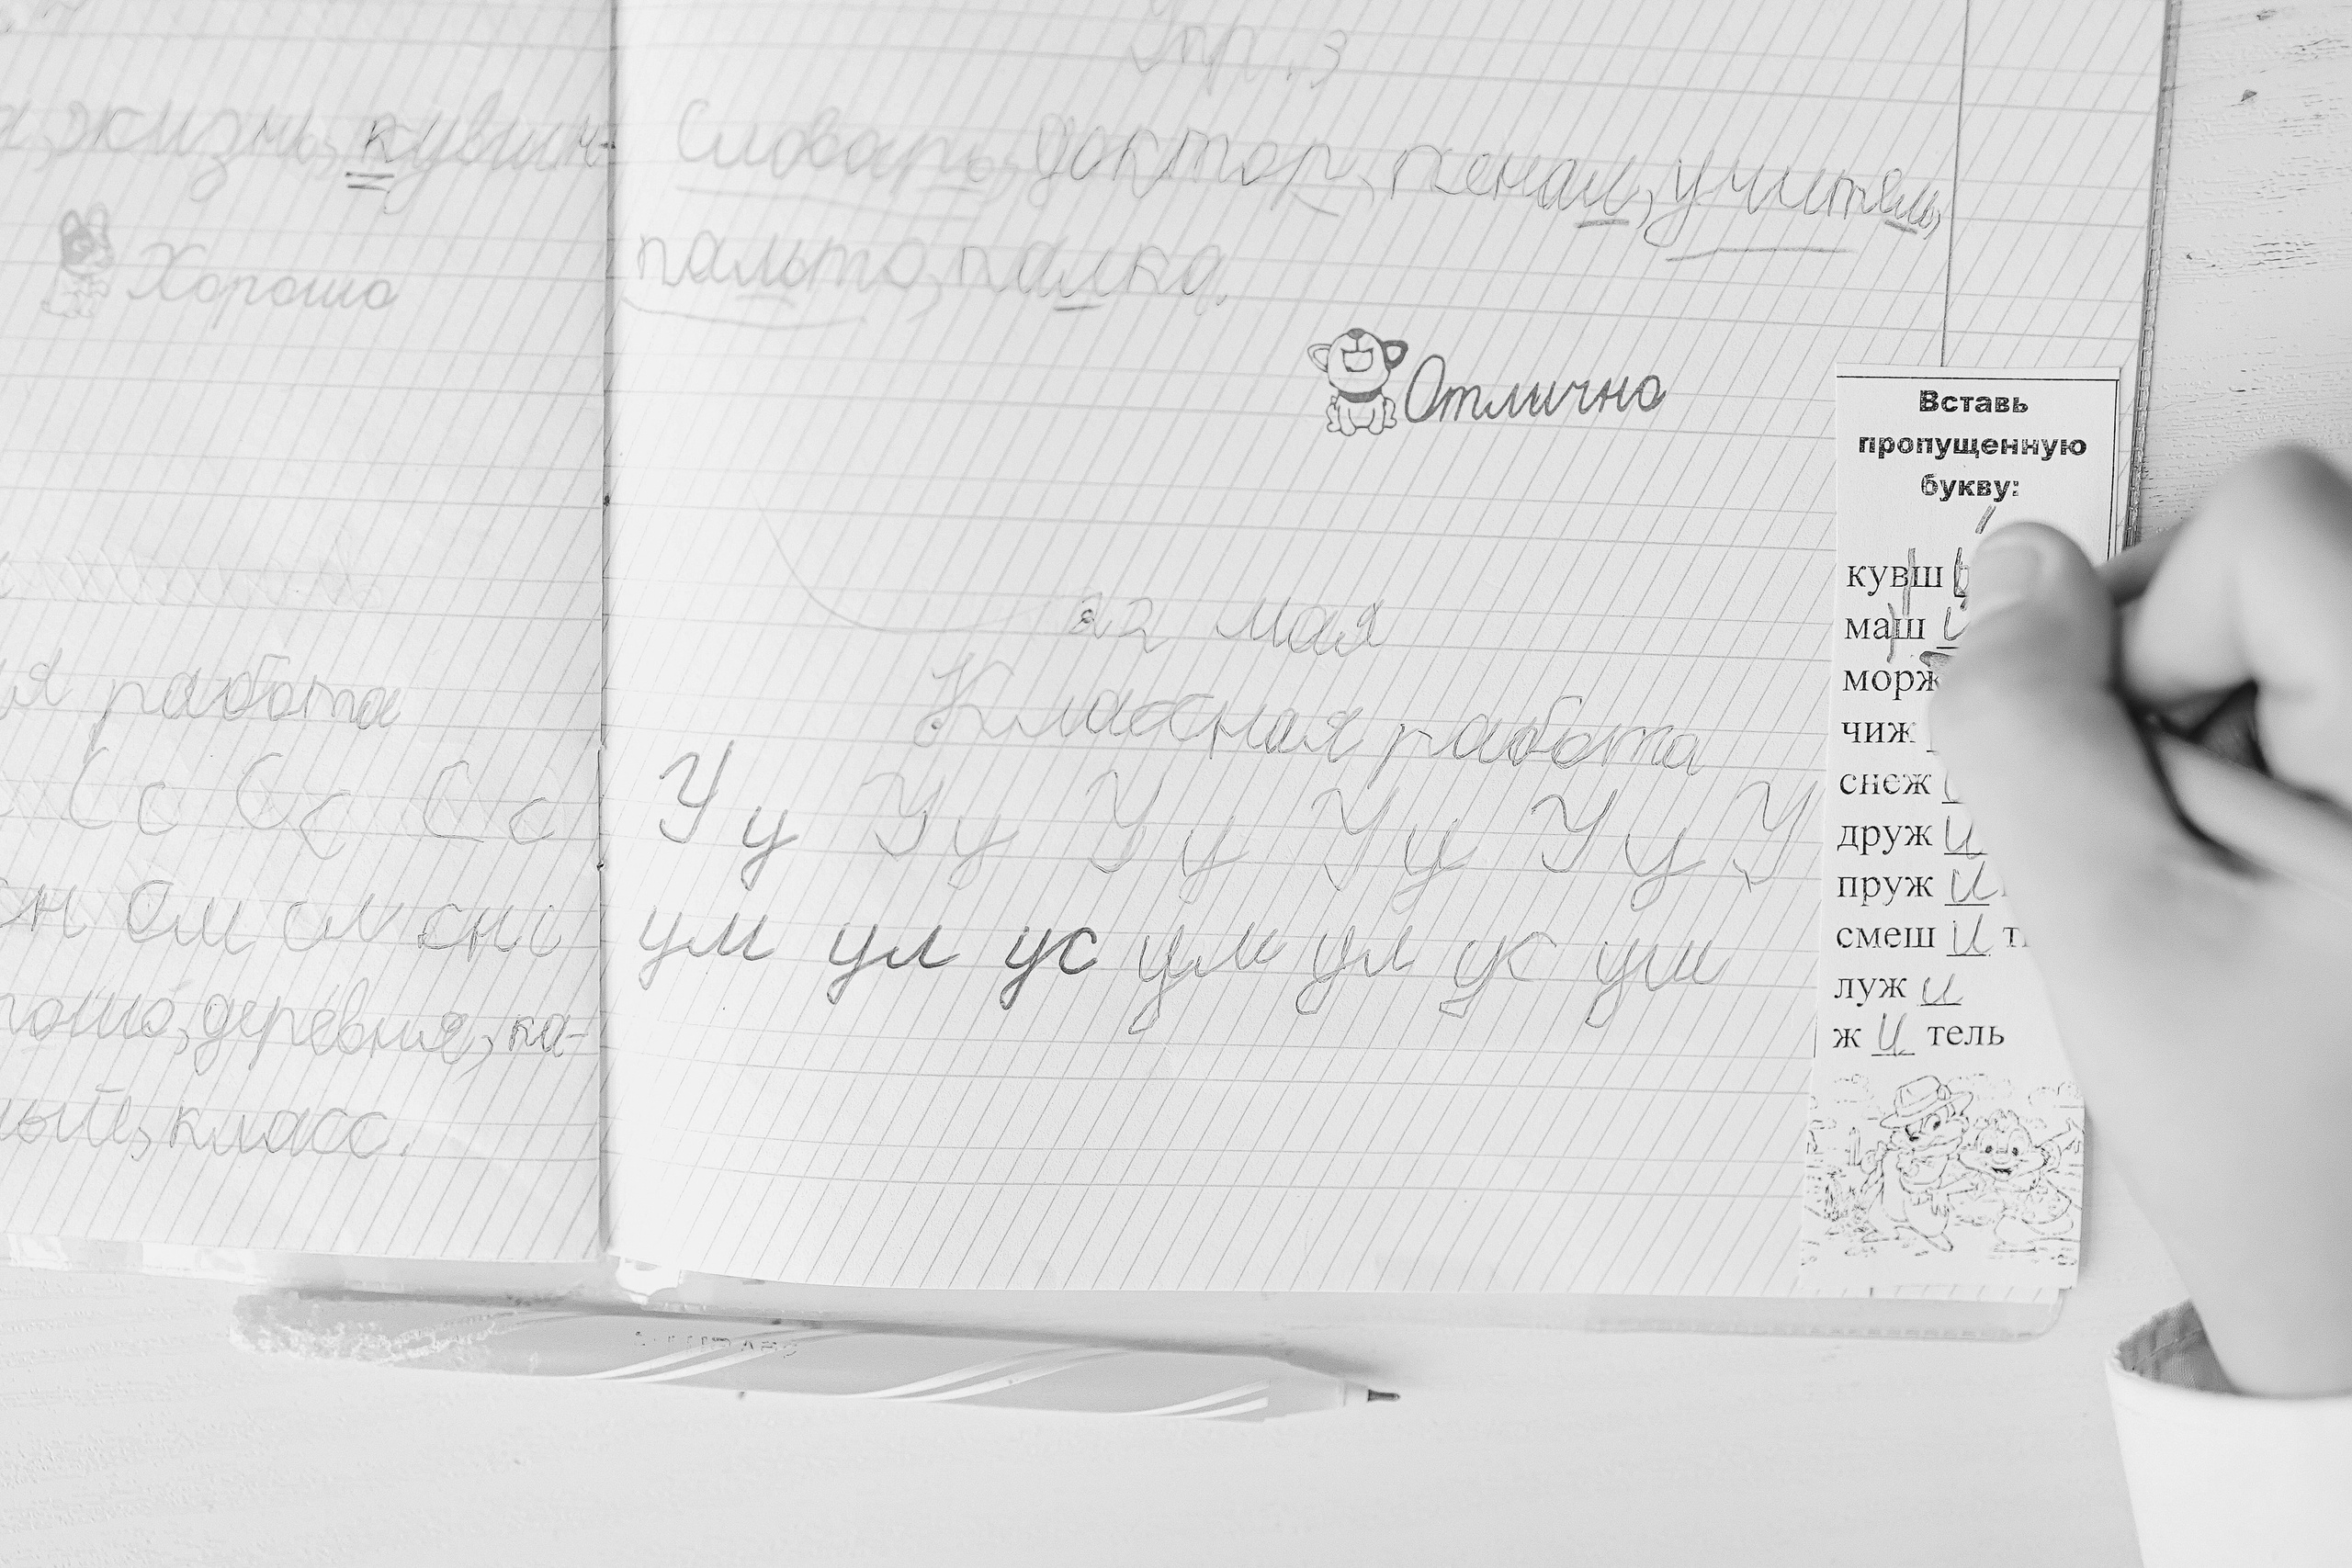 жизнь, кувшин-
Хорошо
работа
Сс Сс Сс
ом
деревня, ка-
класс.
Упр. 3
Словарь, доктор, пенал, учитель,
пальто, палка.
Отлично
22 мая
Классная работа
Уу Уу Уу Уу Уу У
ум ул ус ум ул ус уш
Вставь
пропущенную
букву:
кувш
маш и
морж
чиж
снеж
друж и
пруж и
смеш и
луж и
ж и тель